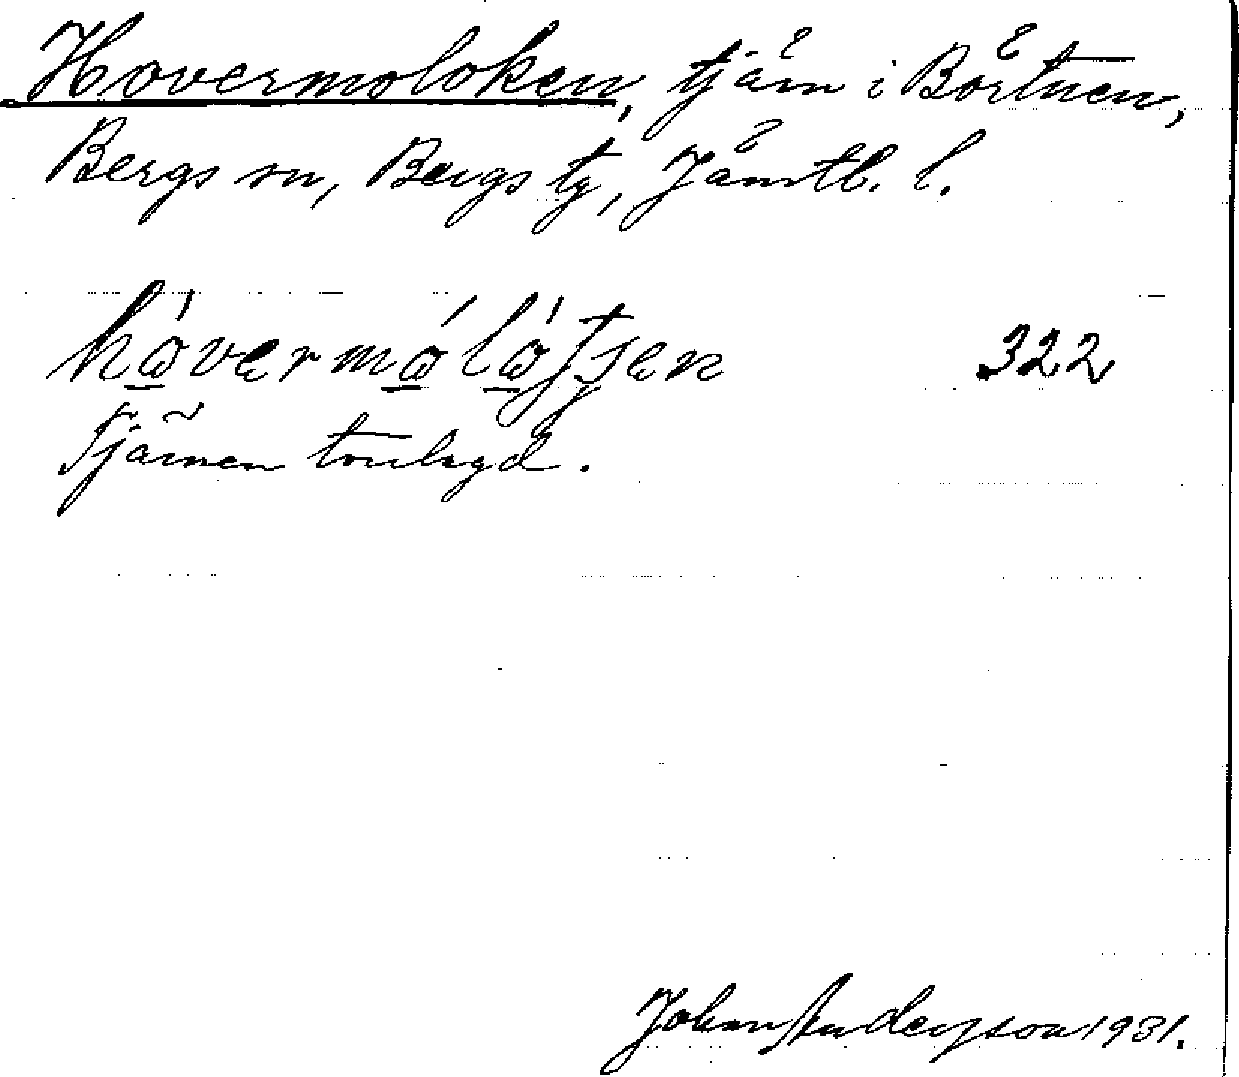 Hovermoloken, tjärn i Börtnen,
Bergs sn, Bergs tg, Jämtl. l.
hóvermólótjen 322
Tjärnen torrlagd.
Johan Anderson 1931.